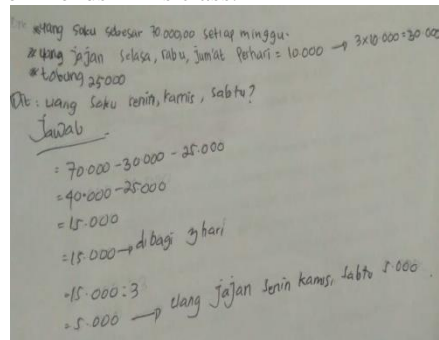 * uang saku sebesar 70.000,00 setiap minggu.
* uang jajan selasa, rabu, jum'at perhari = 10.000 → 3x10.000=30.000
* tabung 25000
Dit : uang saku senin, kamis, sabtu?
Jawab
= 70.000 - 30.000 - 25.000
= 40.000 - 25000
= 15.000
= 15.000 → dibagi 3 hari
= 15.000 : 3
= 5.000 → uang jajan senin kamis, sabtu 5.000.